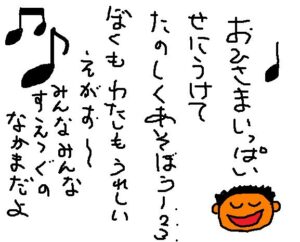 おひさまいっぱい
せにうけて
たのしくあそぼう〜
ぼくもわたしもうれしい
えがお〜
みんなみんな
すえっぐの
なかまだよ